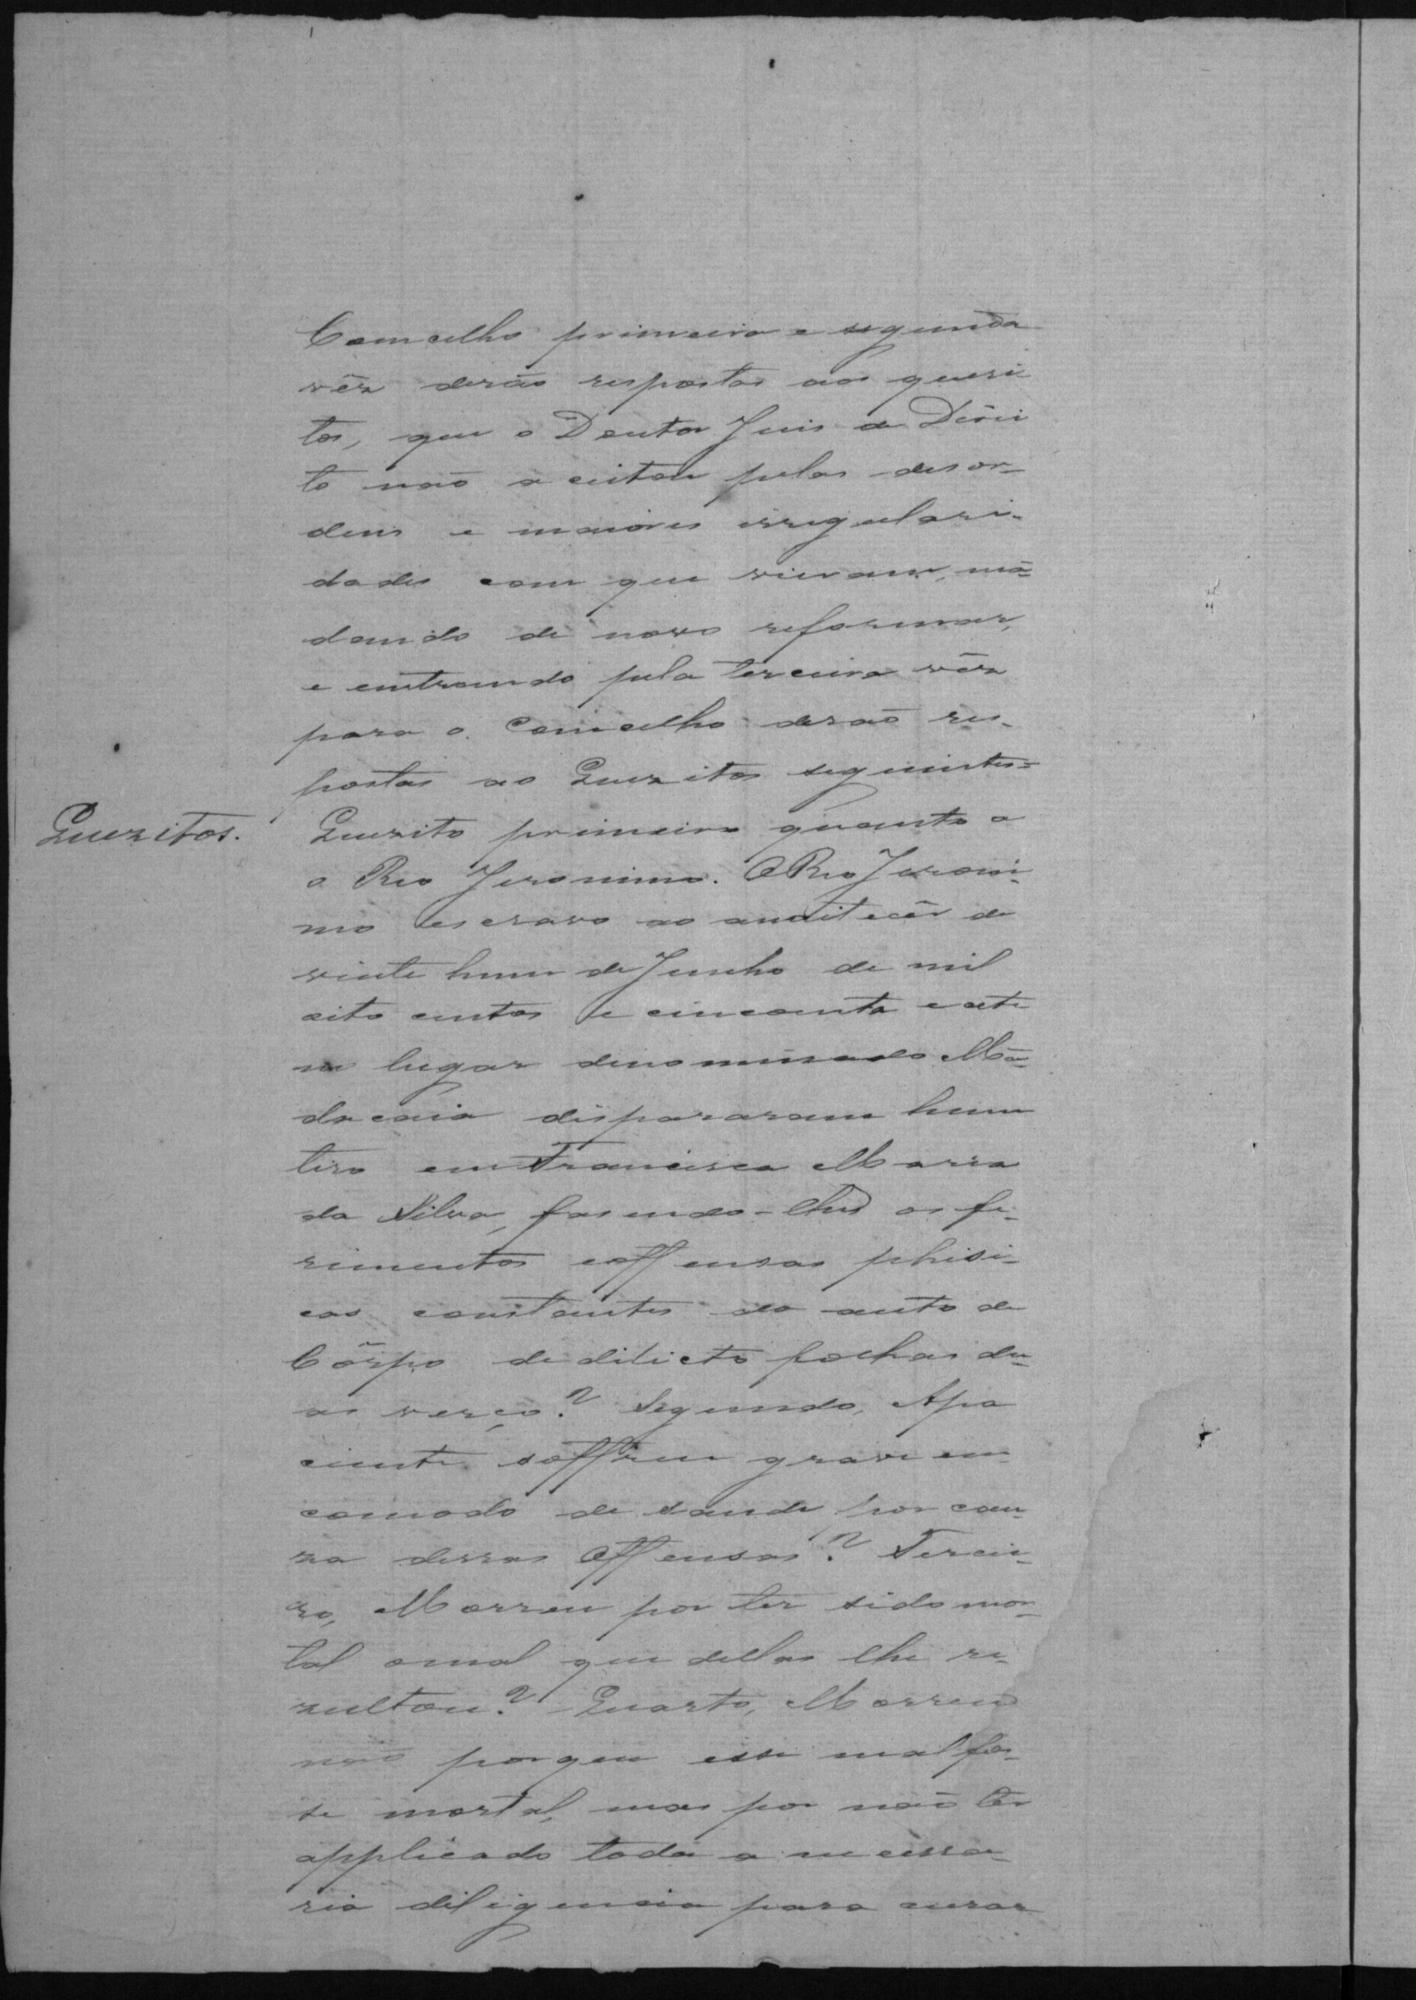 Comcelho primeira e segunda
vêz derão respostas aos quesi
tos, que o Doutor Juis de Direi
to não aceitou pelas desor-
dens e maiores irregulari-
dades com que vieram, mã-
dando de novo reformar,
e entrando pela terceira vêz
para o Comcelho derão res-
postas ao Quezitos seguintes=
Quezitos.
Quezito primeiro quanto a
o Reo Jeronimo. O Reo Jeroni-
mo escravo ao anoitecêr de
vinte hum de Junho de mil
oito centos e cincoenta e sete
no lugar denominado Mã-
dacaia dispararam hum
tiro em Francisca Maria
da Silva, fasendo-lhes os fe-
rimentos e offensas phisi-
cas constantes do auto de
Côrpo de dilicto folhas du-
as verço? Segundo, Apa
ciente soffreu grave en-
comodo de saude por cau-
za dessas Offensas? Tercei-
ro, Morreu por ter sido mor-
tal omal que dellas lhe re-
zultou? Quarto, Morreu
não porque esse mal fos-
se mortal, mas por não têr
applicado toda a necessa-
ria diligencia para curar